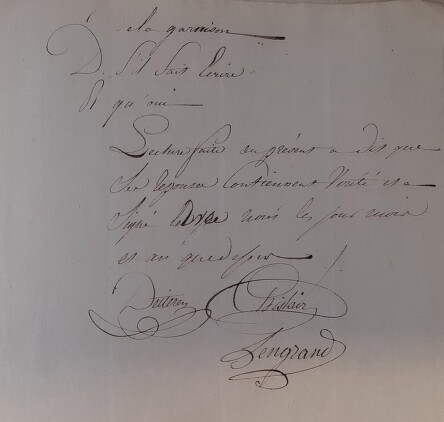 de la garnison
D. S'il sait Ecrire
R qu'oui
Lecture faite du présent a dit que
Ses reponses Contiennent Verité et a
Signé avec nous les jour mois
et an que dessus
Lengrand